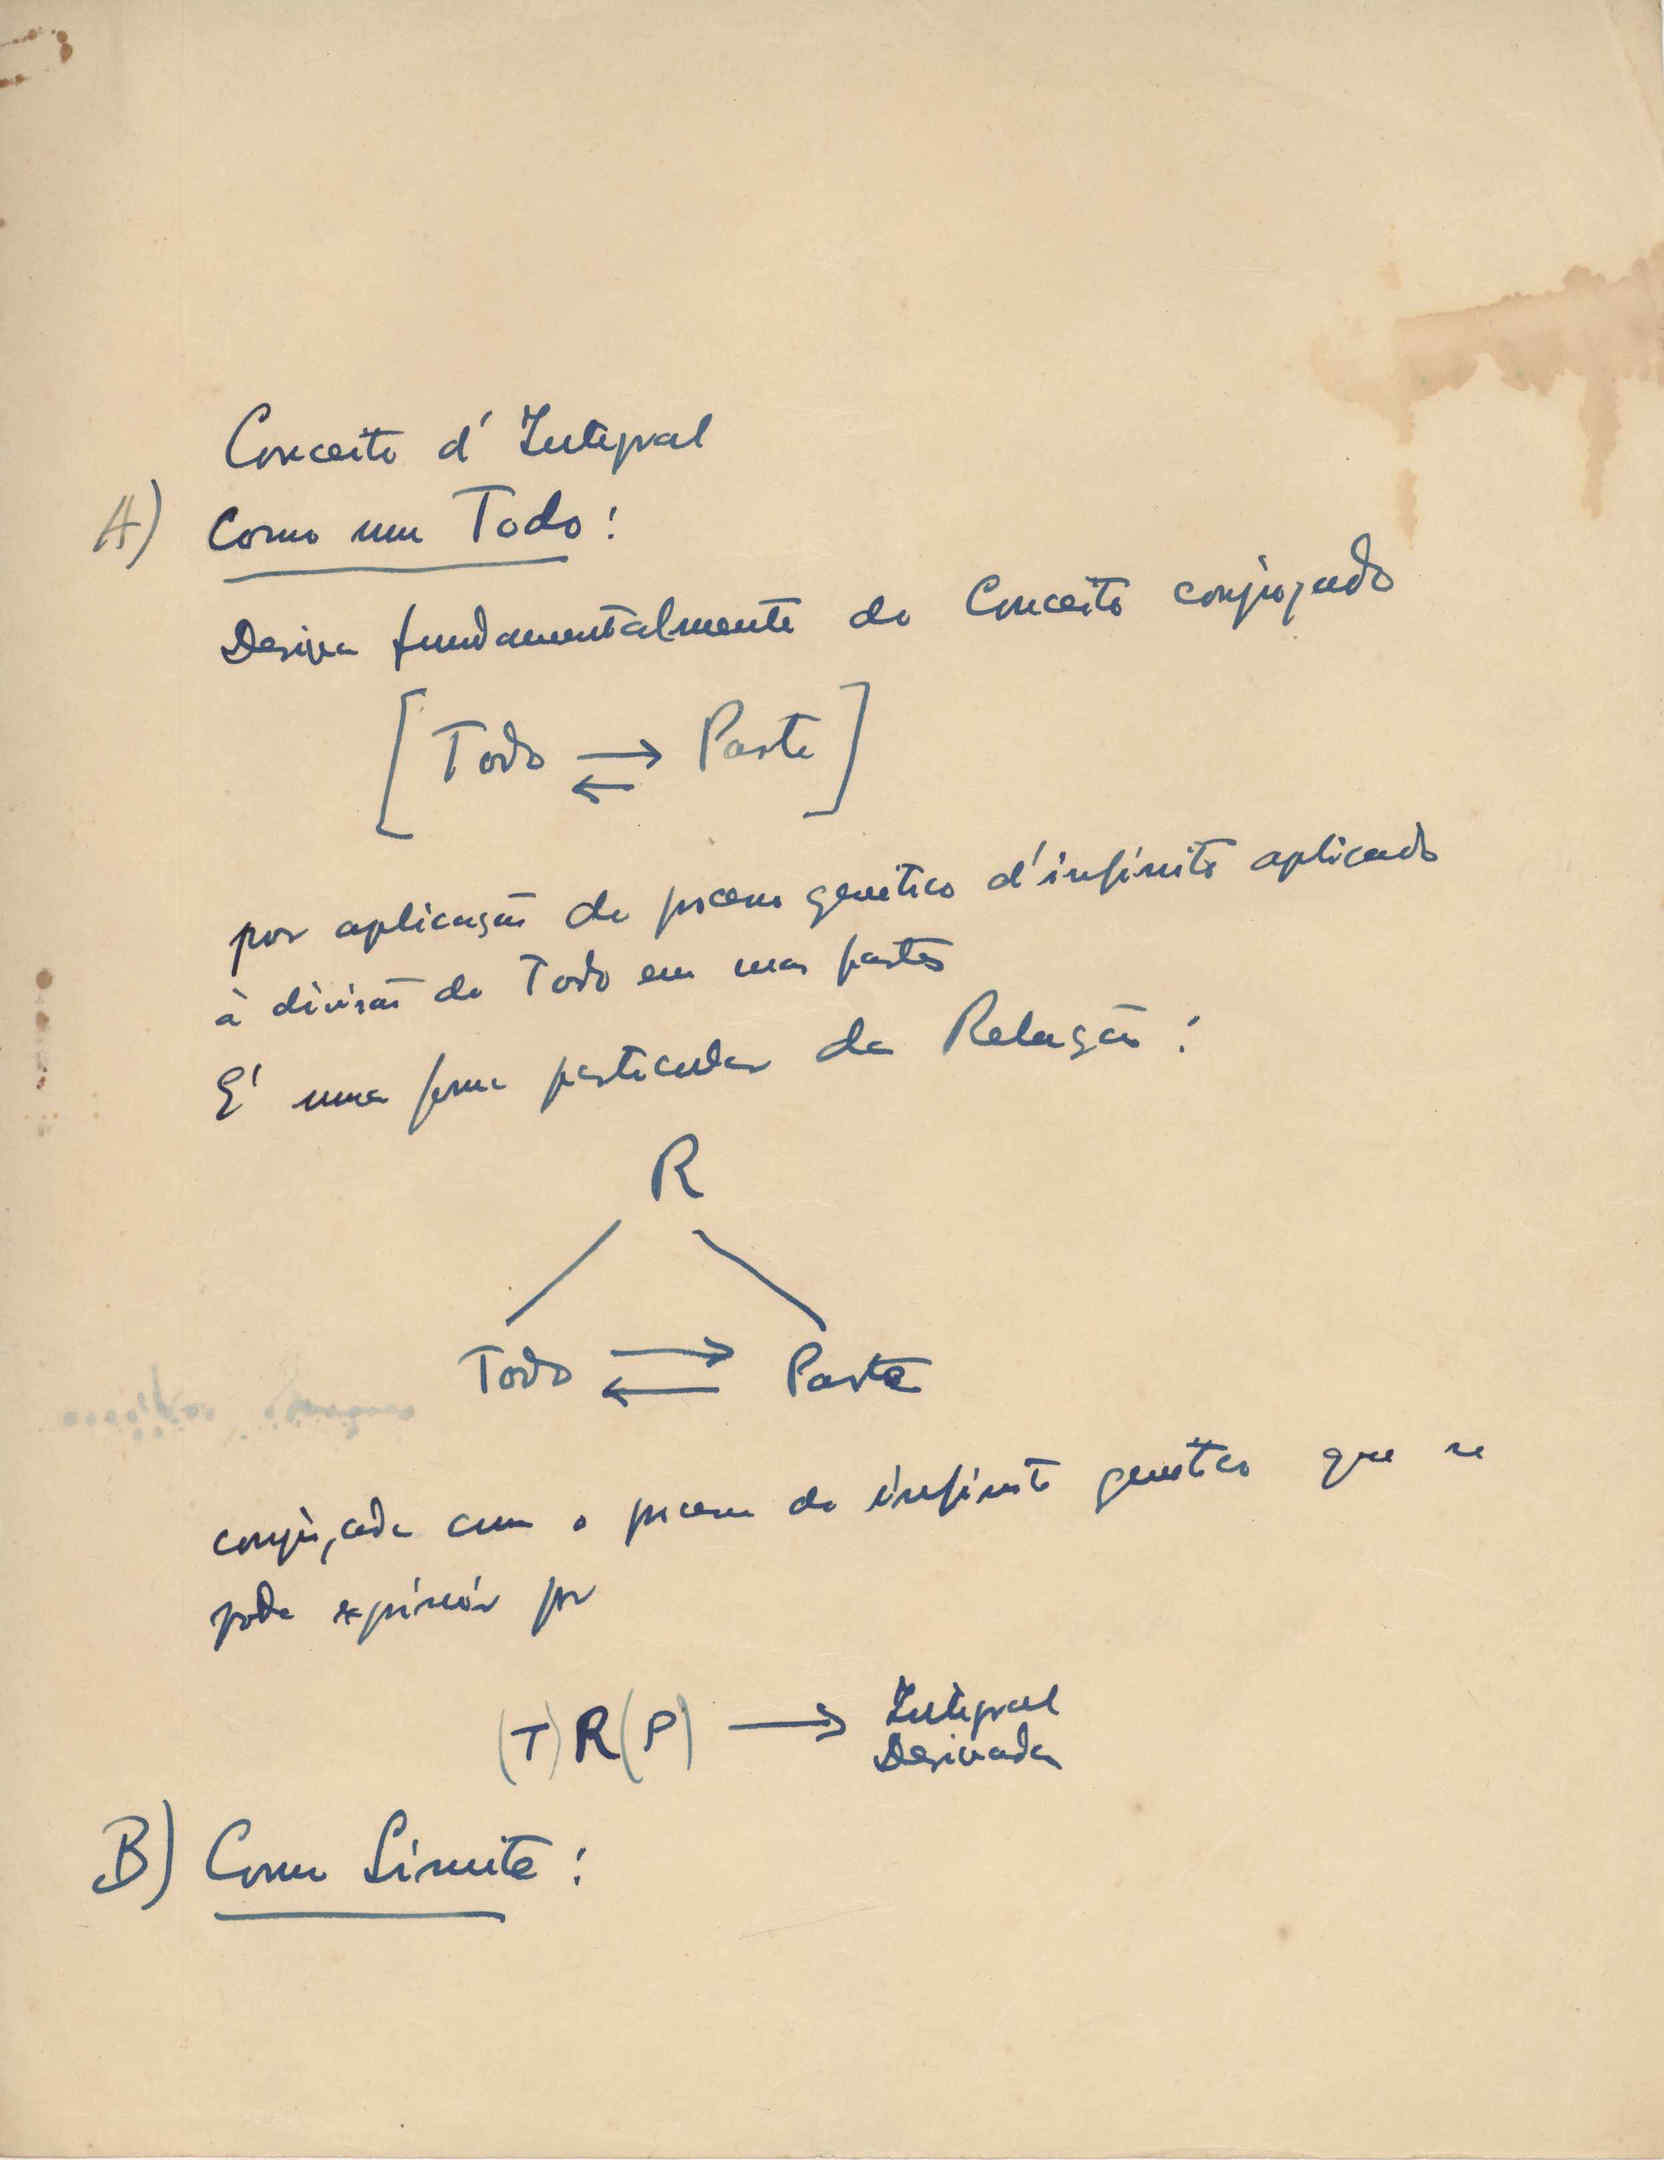 Conceito d'Integral
A) Como um Todo:
Deriva fundamentalmente do Conceito conjugado
[Todo ⇄ Parte]
por aplicação do processo genético d'infinito aplicado
à divisão do Todo em suas partes
É uma forma particular da Relação:
R
Todo ⇄ Parte
conjugada com o processo do infinito genético que se
pode exprimir por
(T) R (P) → Integral
Derivada
B) Como Limite: